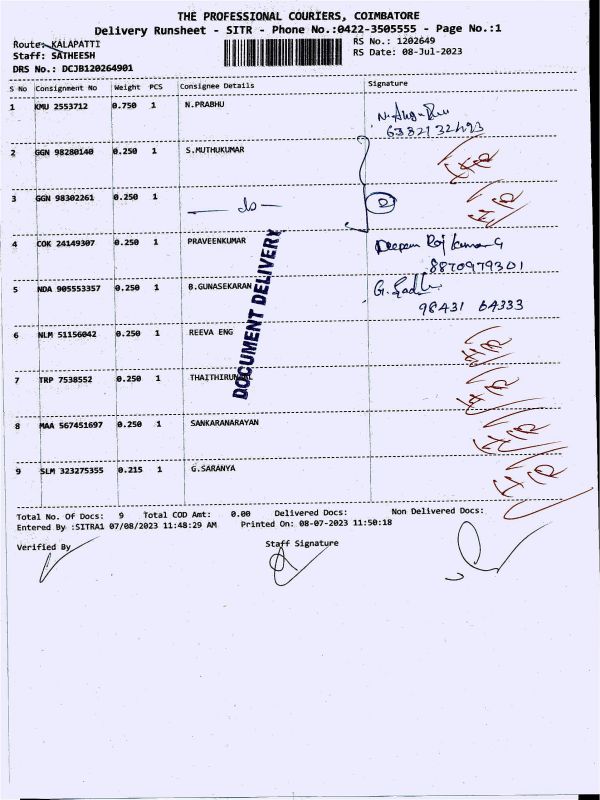 THE PROFESSIONAL COURIERS, COIMBATORE
Delivery Runsheet - SITR - Phone No.:0422-3505555 - Page No.:1
Route: KALAPATTI
RS No.: 1202649
Staff: SATHEESH
RS Date: 08-Jul-2023
DRS No.: DCJB120264901
S No Consignment No Weight PCS Consignee Details Signature
1 KMU 2553712 0.750 1 N.PRABHU
6382132493
2 GGN 98280140 0.250 1 S.MUTHUKUMAR
3 GGN 98302261 0.250 1 — do — 2
4 COK 24149307 0.250 1 PRAVEENKUMAR Deepan Raj Kumar G
8870979301
5 NDA 905553357 0.250 1 B.GUNASEKARAN
98431 64333
6 NLM 51156042 0.250 1 REEVA ENG
7 TRP 7538552 0.250 1
8 MAA 567451697 0.250 1 SANKARANARAYAN
9 SLM 323275355 0.215 1 G.SARANYA
DOCUMENT DELIVERY
Total No. Of Docs: 9 Total COD Amt: 0.00 Delivered Docs: Non Delivered Docs:
Entered By :SITRA1 07/08/2023 11:48:29 AM Printed On: 08-07-2023 11:50:18
Verified By Staff Signature